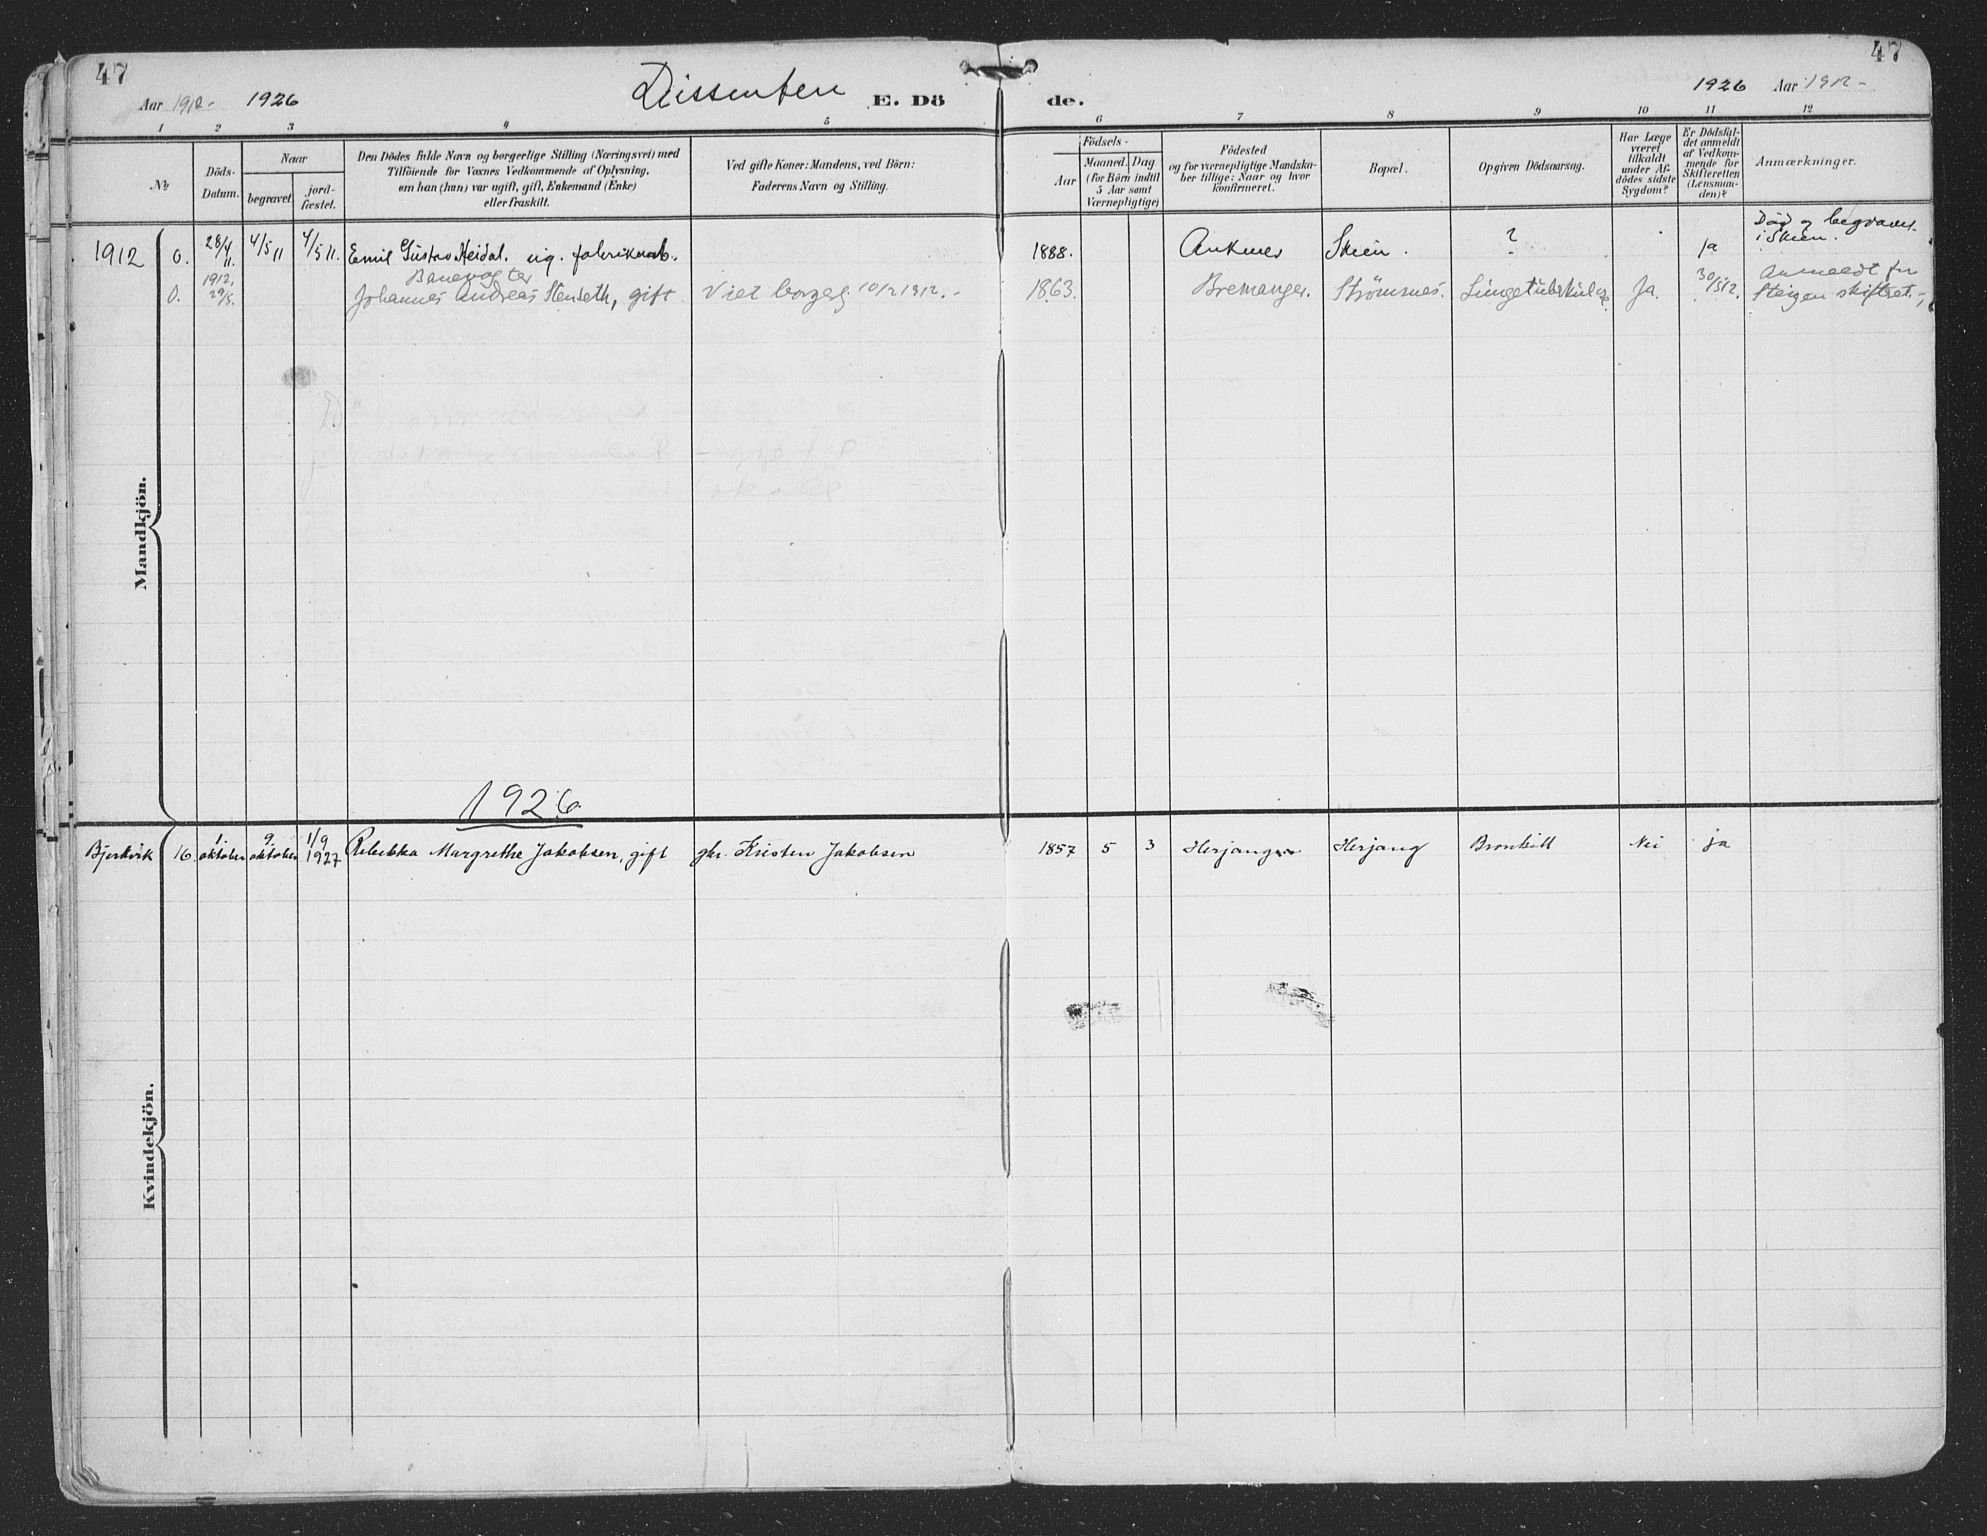 47
47
Aar 1912- 1926
Dissenter
E. Döde.
1926 Aar 1912-
1 2 3 4 5 6 7 8 9 10 11 12
No
Döds-
Datum.
Naar
begravet
jord-
fæstet.
Den Dödes fulde Navn og borgerlige Stilling (Næringsvei) med
Tilföiende for Voxnes Vedkommende af Oplysning,
om han (hun) var ugift, gift, Enkemand (Enke)
eller fraskilt.
Ved gifte Koner: Mandens, ved Börn:
Faderens Navn og Stilling.
Födsels-
Aar
Maaned. Dag.
(for Börn indtil
5 Aar samt
Værnepligtige)
Födested
og for værnepligtige Mandska-
ber tillige: Naar og hvor
konfirmeret.
Bopæl.
Opgiven Dödsaarsag.
Har Læge
været
tilkaldt
under Af-
dödes sidste
Sygdom?
Er Dödsfal-
det anmeldt
af Vedkom-
mende for
Skifteretten
(Lensman-
den)?
Anmærkninger.
Mandkjön.
1912 0. 28/4 11. 4/5 11 4/5 11. Emil Gustav Heidal. ug. fabrikarb. 1888. Ankenes Skien. ? ja Död og begravet
i Skien.
Banevogter
0. 1912. 29/5. Johannes Andreas Stenseth, gift Viet borgerl. 10/2 1912.- 1863. Bremanger. Strömsnes. Lungetuberkulose Ja. 30/5 12. Anmeldt for
Steigen skifteret.-
1926
Bjerkvik 16 1. oktober 9. oktober 1/9 1927 Rebekka Margrethe Jakobsen, gift gbr. Kristen Jakobsen 1857 5 3 Herjangen Herjang Bronkitt Nei ja
Kvindekjön.